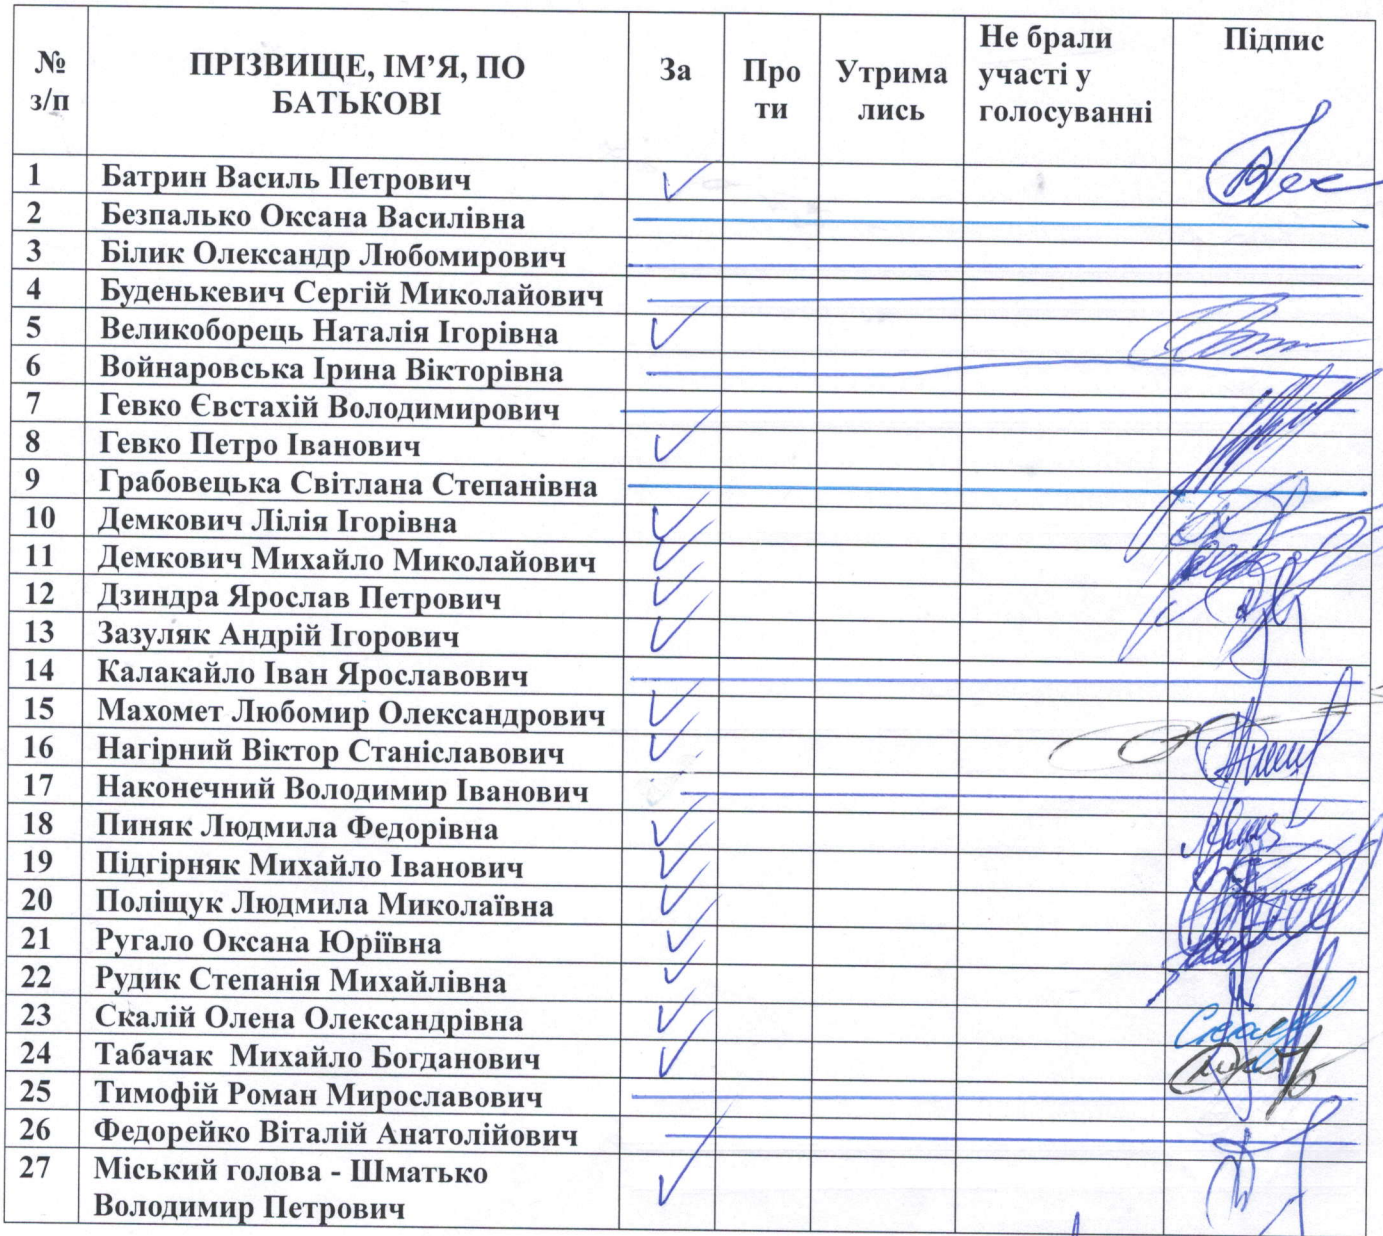 № з/п ПРІЗВИЩЕ, ІМ’Я, ПО БАТЬКОВІ За Про ти Утрима лись Не брали участі у голосуванні Підпис
1 Батрин Василь Петрович ✓
2 Безпалько Оксана Василівна
3 Білик Олександр Любомирович
4 Буденькевич Сергій Миколайович
5 Великоборець Наталія Ігорівна ✓
6 Войнаровська Ірина Вікторівна
7 Гевко Євстахій Володимирович
8 Гевко Петро Іванович ✓
9 Грабовецька Світлана Степанівна
10 Демкович Лілія Ігорівна ✓
11 Демкович Михайло Миколайович ✓
12 Дзиндра Ярослав Петрович ✓
13 Зазуляк Андрій Ігорович ✓
14 Калакайло Іван Ярославович
15 Махомет Любомир Олександрович ✓
16 Нагірний Віктор Станіславович ✓
17 Наконечний Володимир Іванович
18 Пиняк Людмила Федорівна ✓
19 Підгірняк Михайло Іванович ✓
20 Поліщук Людмила Миколаївна ✓
21 Ругало Оксана Юріївна ✓
22 Рудик Степанія Михайлівна ✓
23 Скалій Олена Олександрівна ✓
24 Табачак Михайло Богданович ✓
25 Тимофій Роман Мирославович
26 Федорейко Віталій Анатолійович
27 Міський голова - Шматько ✓
Володимир Петрович